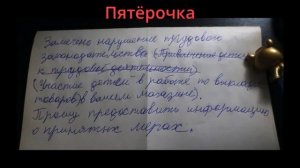 Пятёрочка
Замечено нарушение трудового
законодательства (Привлечение детей
к трудовой деятельности).
(Участие детей в работе по выкладке
товаров в вашем магазине).
Прошу предоставить информацию
о принятых мерах.